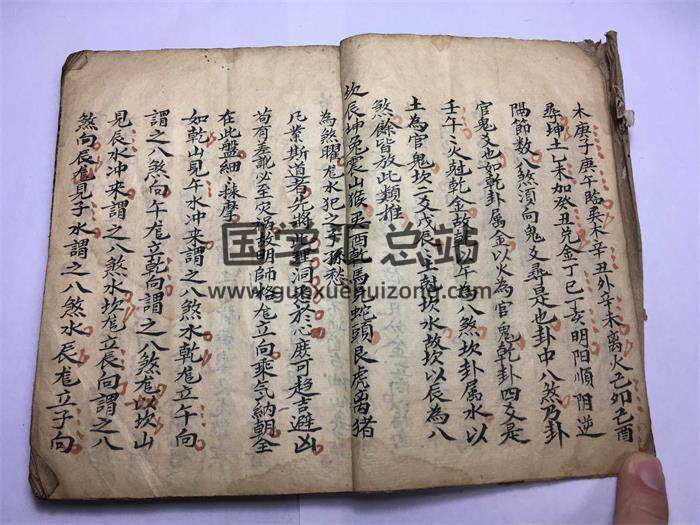 木庚子庚午臨巽木辛丑外辛未离火己卯己酉
尋坤土乙未加癸丑兑金丁巳丁亥明阳順阴逆
陽節数八煞須向鬼爻尋是也卦中八煞乃卦
官鬼爻也如乾卦属金以火為官鬼乾卦四爻是
壬午火尅乾金故乾以午為八煞坎卦属水以
土為官鬼坎二爻戊辰土尅坎水故坎以辰為八
煞餘皆放此類推
坎辰坤兔震山猴巽酉乾馬兑蛇頭艮虎离猪
為煞曜宅水犯之子孫愁
凡業斯道者先将此理洞達於心庶可趋吉避凶
苟有差訛必至灾
在此盤細揉摩
如乾山見午水冲来謂之八煞水乾龙立午向
謂之八煞向午龙立乾向謂之八煞龙以坎山
見辰水冲来謂之八煞水坎龙立辰向謂之八
煞向辰龙見子水謂之八煞水辰龙立子向
国学汇总站
www.guoxuehuizong.com